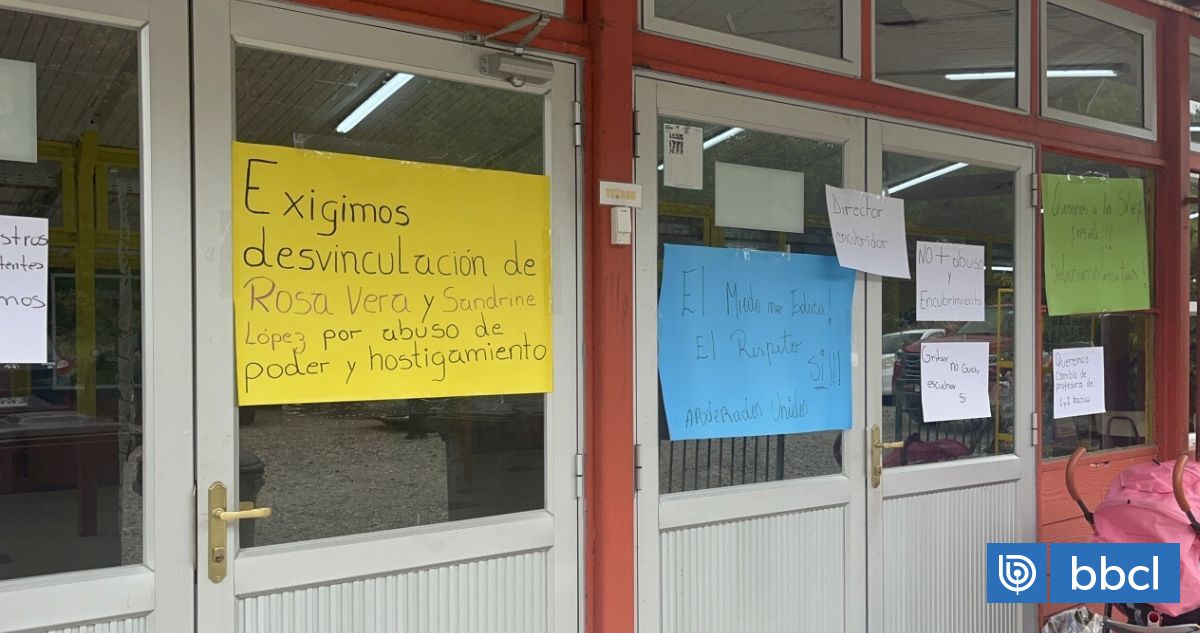 stros
tentes
mos
Exigimos
desvinculación de
Rosa Vera y Sandrine
López por abuso de
poder y hostigamiento
El Miedo no Educa!
El Respeto
Si!!!
Apoderados Unidos
Director
encubridor
NO + abuso
y
Encubrimiento
Gritar no Guia,
escuchar
si
Queremos a la Slep
presente!!!
Queremos
cambio de
profesora de
1 y 2 basico
bbcl